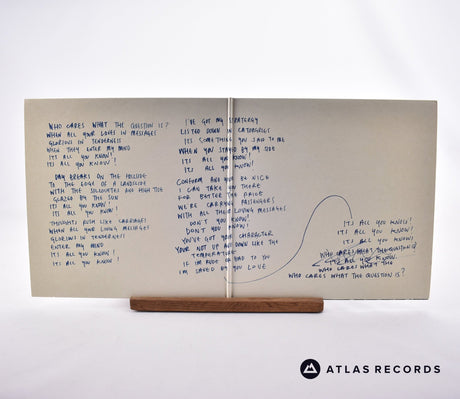 WHO CARES WHAT THE QUESTION IS?
WHEN ALL YOUR LOVES IN MESSAGES
GLORIOUS IN TENDERNESS
WHEN THEY ENTER MY MIND
ITS ALL YOU KNOW!
ITS ALL YOU KNOW!
DAY BREAKS ON THE HILLSIDE
TO THE EDGE OF A LANDSLIDE
WITH THE SOLOISTES AND HIGH TOE
GLAZED BY THE SUN
ITS ALL YOU KNOW!
ITS ALL YOU KNOW!
THOUGHTS RUSH LIKE CARRIAGES
WHEN ALL YOUR LOVING MESSAGES
GLORIOUS IN TENDERNESS
ENTER MY MIND
ITS ALL YOU KNOW!
ITS ALL YOU KNOW!
I'VE GOT MY STRATERGY
LISTED DOWN IN CATORGEIES
ITS SOMETHING YOU SAID TO ME
WHEN YOU STAYED BY MY SIDE
ITS ALL YOU KNOW!
ITS ALL YOU KNOW!
CONFORM AND BE NICE
I CAN TAKE YOU THERE
FOR BETTER THE PRICE
WE'RE CARRYING PASSENGERS
WITH ALL THEIR LOVING MESSAGES
DON'T YOU KNOW!
DON'T YOU KNOW!
YOU'VE GOT YOUR CHARACTER
YOUR NOT UP AND DOWN LIKE THE
TEMPERATURE
IF IM RUDE OR BAD TO YOU
IM SAVED BY YOU LOVE
ITS ALL YOU KNOW!
ITS ALL YOU KNOW!
ITS ALL YOU KNOW!
WHO CARES WHAT THE QUESTION IS
ITS ALL YOU KNOW.
WHO CARES WHAT THE
WHO CARES WHAT THE QUESTION IS?
ATLAS RECORDS